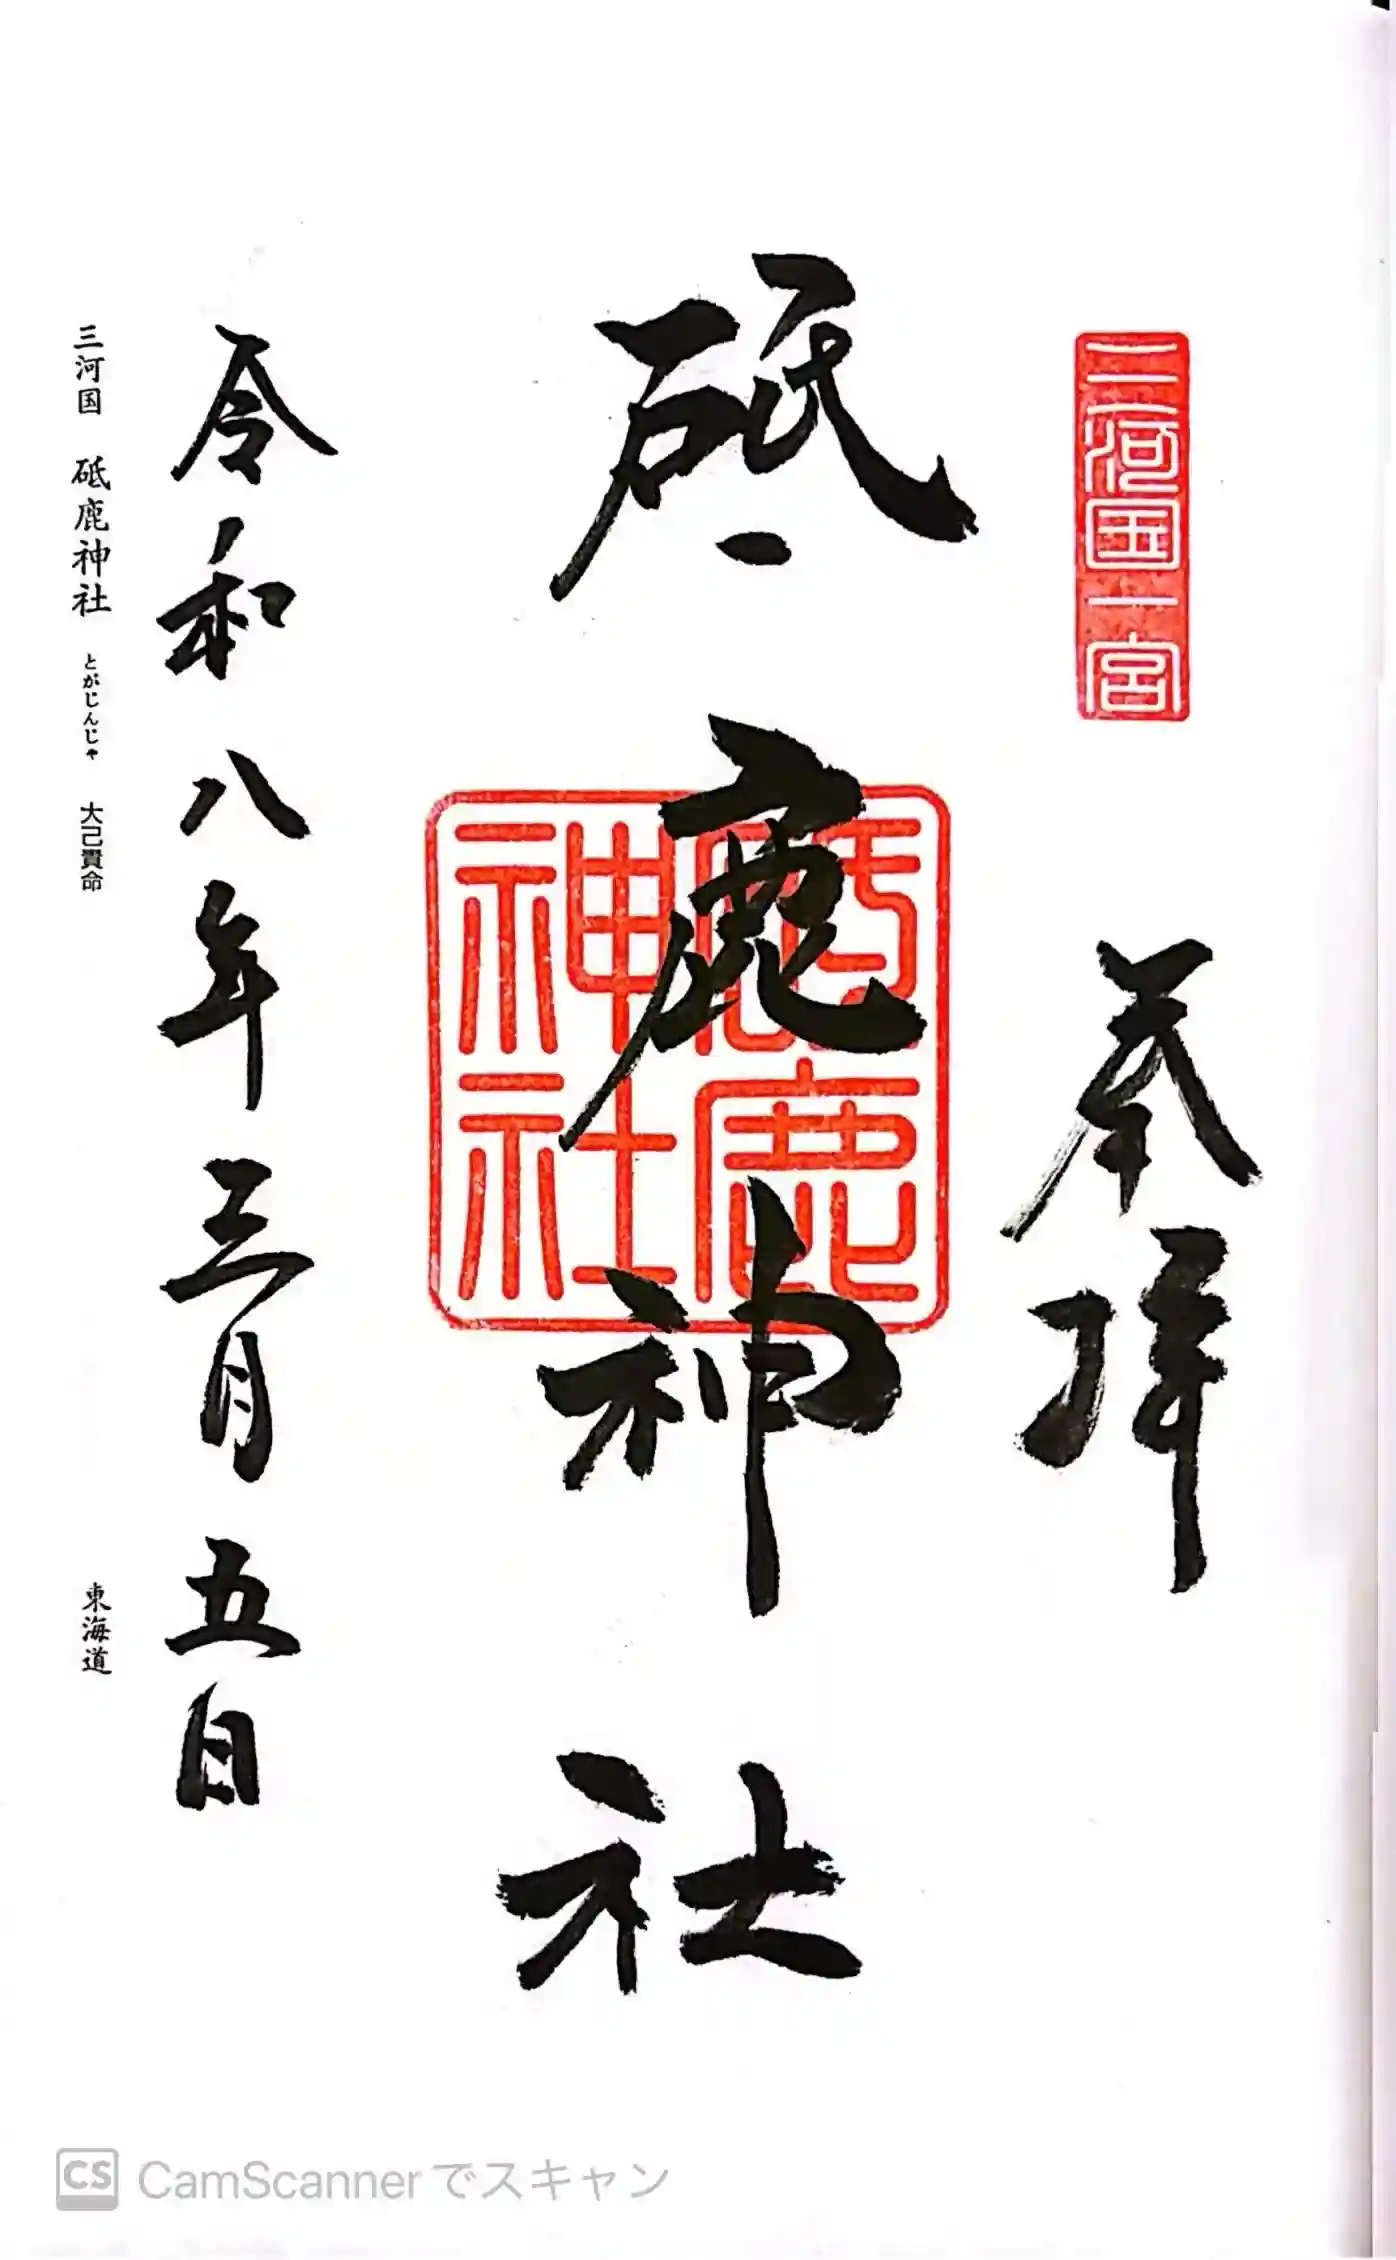 三河国一宮
奉拝
砥鹿神社
砥鹿神社
令和八年三月五日
三河国 砥鹿神社 とがじんじゃ 大己貴命 東海道
CS CamScannerでスキャン